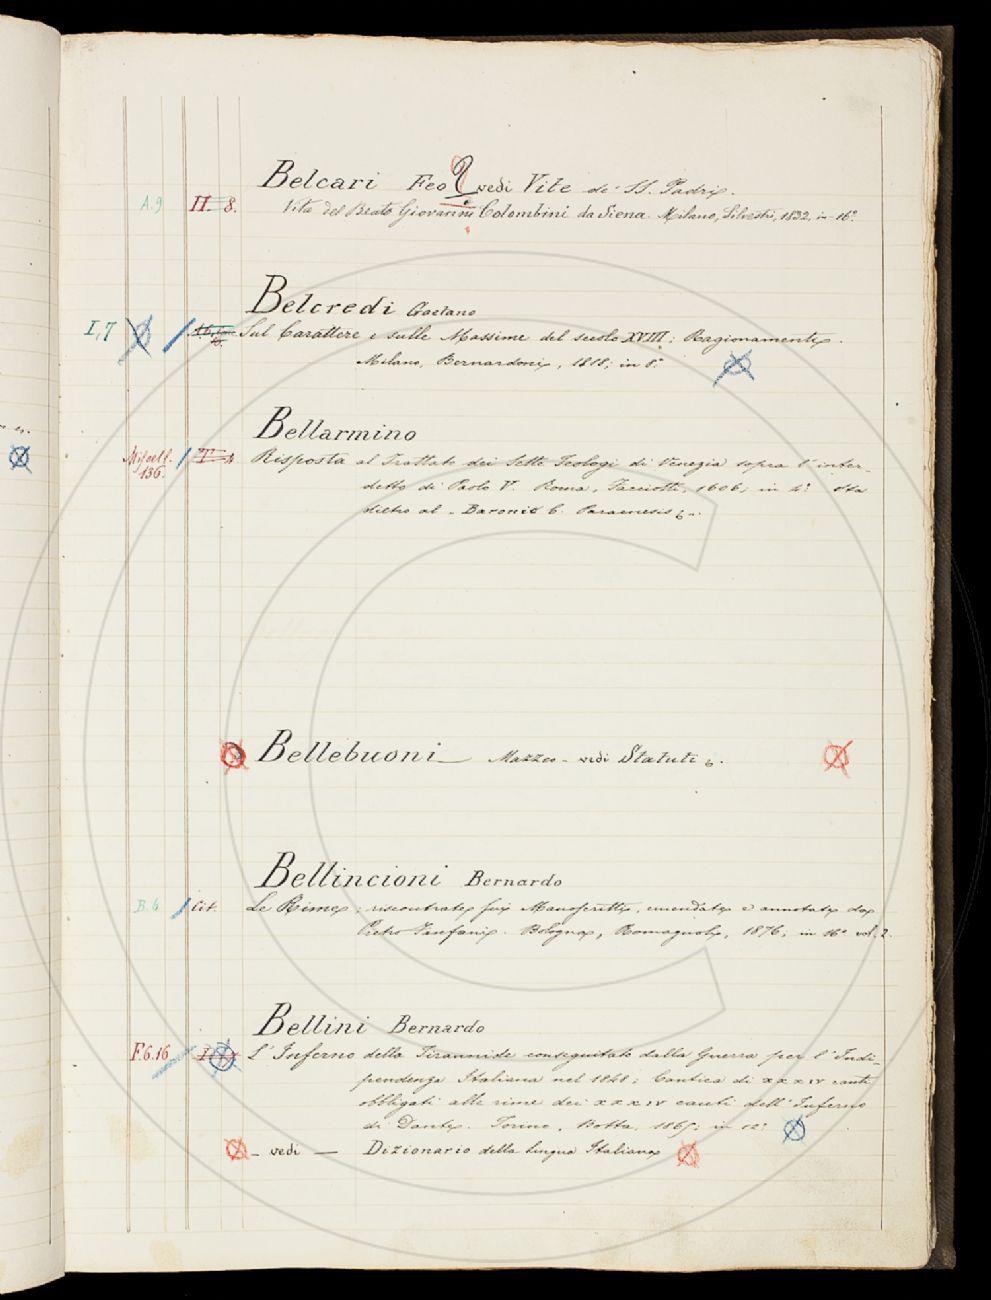 Belcari Feo vedi Vite de' SS. Padri.
A.9 II. 8. Vita del Beato Giovanni Colombini da Siena. Milano, Silvestri, 1832, in-16°.
Belcredi Gaetano
I,7 Sul Carattere e sulle Massime del secolo XVIII: Ragionamento.
Milano, Bernardoni, 1818; in 8°.
Bellarmino
Miscell. 136. T 4. Risposta al Trattato dei Sette Teologi di Venezia sopra l'inter-
detto di Paolo V. Roma, Facciotti, 1606; in 4°. Sta
dietro al "Baronii C. Paraenesis
Bellebuoni Mazzeo - vedi Statuti
Bellincioni Bernardo
B.6 Cit. Le Rime; riscontrate sui Manoscritti, emendate e annotate da
Pietro Fanfani. Bologna, Romagnoli, 1876; in 16° vol. 2.
Bellini Bernardo
F.6.16 L'Inferno della Tirannide conseguitato dalla Guerra per l'Indi-
pendenza Italiana nel 1848; Cantica di XXXIV canti
obbligati alle rime dei XXXIV canti dell'Inferno
di Dante. Torino, Botta, in 12°
- vedi — Dizionario della Lingua Italiana